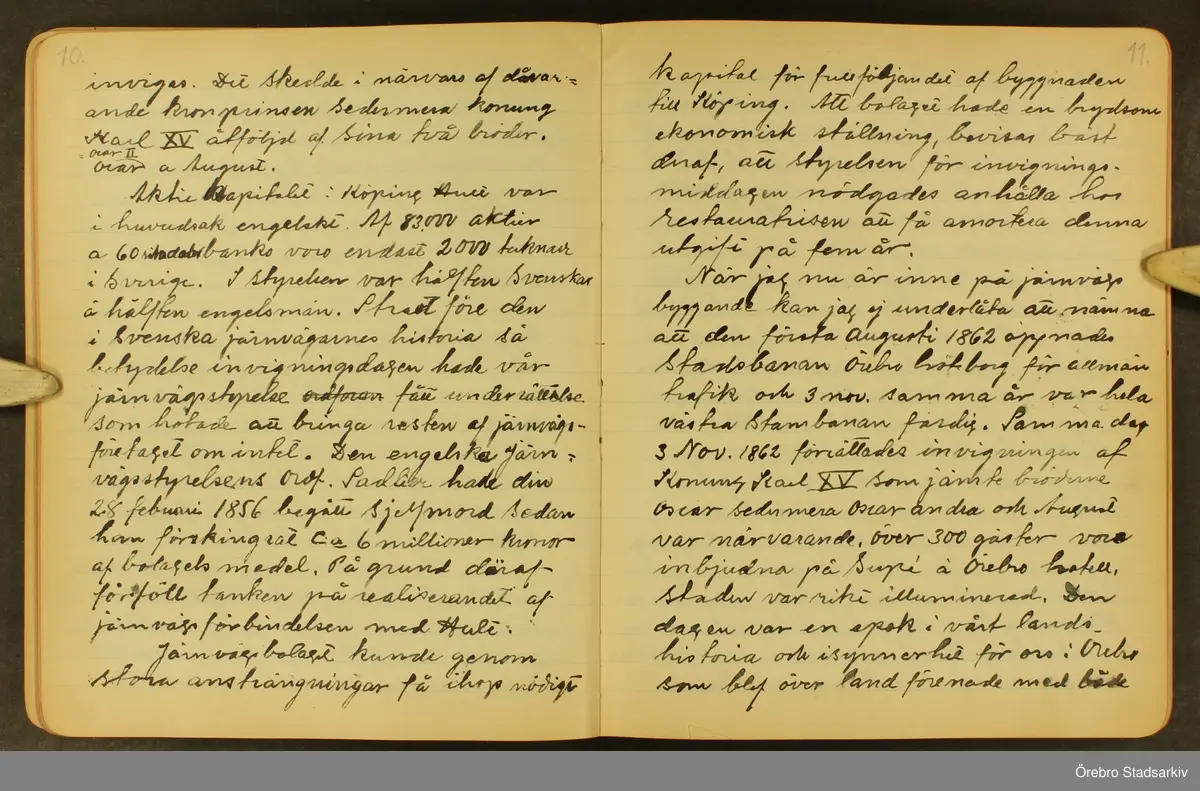 10.
inviges. Det skedde i närvaro af dåvar=
ande kronprinsen sedermera konung
Karl XV åtföljd af sina två bröder.
Oscar II
a August.
Aktie kapitalet i Köping Hult var
i huvudsak engelskt. Af 83,000 aktier
a 60 banko voro endast 2000 teknade
i Sverige. I styrelsen var hälften Svenskar
å hälften engelsmän. Strax före den
i Svenska järnvägarnes historia så
betydelse invigningsdagen hade vår
järnvägsstyrelse fått underrättelse
som hotade att bringa resten af järnvägs-
företaget om intet. Den engelska Järn=
vägsstyrelsens Ordf. Sadleir hade den
28 februari 1856 begått sjelfmord sedan
han förskingrat Ca 6 millioner kronor
af bolagets medel. På grund däraf
förföll tanken på realiserandet af
järnvägsförbindelsen med Hult.
Järnvägsbolaget kunde genom
stora ansträngningar få ihop nödigt
11.
kapital för fullföljandet af byggnaden
till Köping. Att bolaget hade en brydsom
ekonomisk ställning, bevisas bäst
deraf, att styrelsen för invignings-
middagen nödgades anhålla hos
restauratrisen att få amortera denna
utgift på fem år.
När jag nu är inne på järnvägs
byggande kan jag ej underlåta att nämna
att den första Augusti 1862 öppnades
Stadsbanan Örebro Götborg för allmän
trafik och 3 nov. samma år var hela
västra Stambanan färdig. Samma dag
3 Nov. 1862 förrättades invigningen af
Konung Karl XV som jämte bröderne
Oscar sedermera Oscar andra och August
var närvarande. Över 300 gäster voro
inbjudna på Supé å Örebro hotell.
Staden var rikt illuminerad. Den
dagen var en epok i vårt lands-
historia och isynnerhet för oss i Örebro
som blef över land förenade med både
Örebro Stadsarkiv